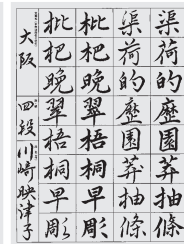 渠荷的歷園莽抽條
渠荷的歷園莽抽條
枇杷晚翠梧桐早彫
枇杷晚翠梧桐早彫
大阪 四段 川崎映津子